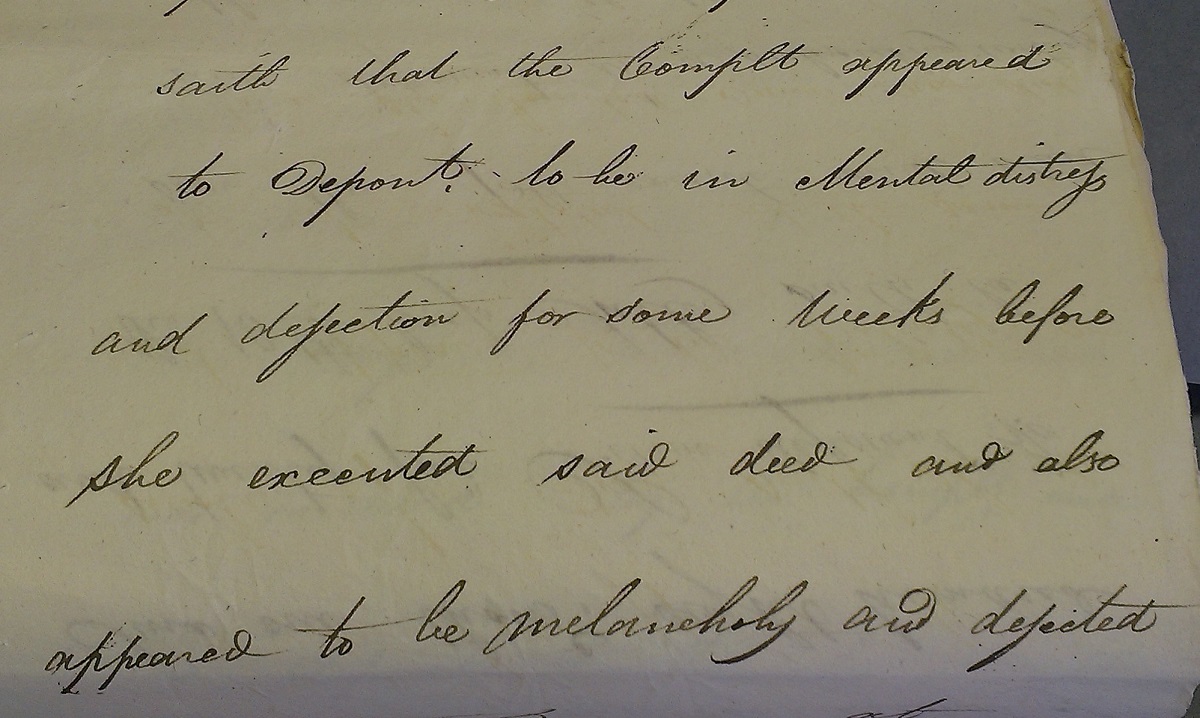 saith that the Complt appeared
to Depont. to be in Mental distress
and dejection for some Weeks before
she executed said deed and also
appeared to be melancholy and dejected